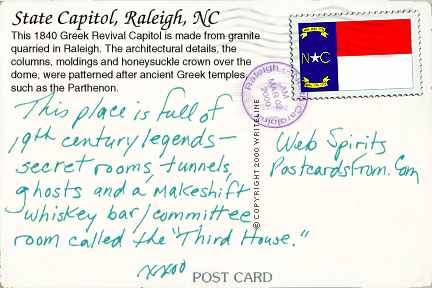 State Capitol, Raleigh, NC
This 1840 Greek Revival Capitol is made from granite
quarried in Raleigh. The architectural details, the
columns, moldings and honeysuckle crown over the
dome, were patterned after ancient Greek temples,
such as the Parthenon.
This place is full of
19th century legends—
secret rooms, tunnels,
ghosts and a makeshift
whiskey bar/committee
room called the "Third House."
xxoo
POST CARD
© COPYRIGHT 2000 WRITELINE
N★C
Web Spirits
PostcardsFrom.Com